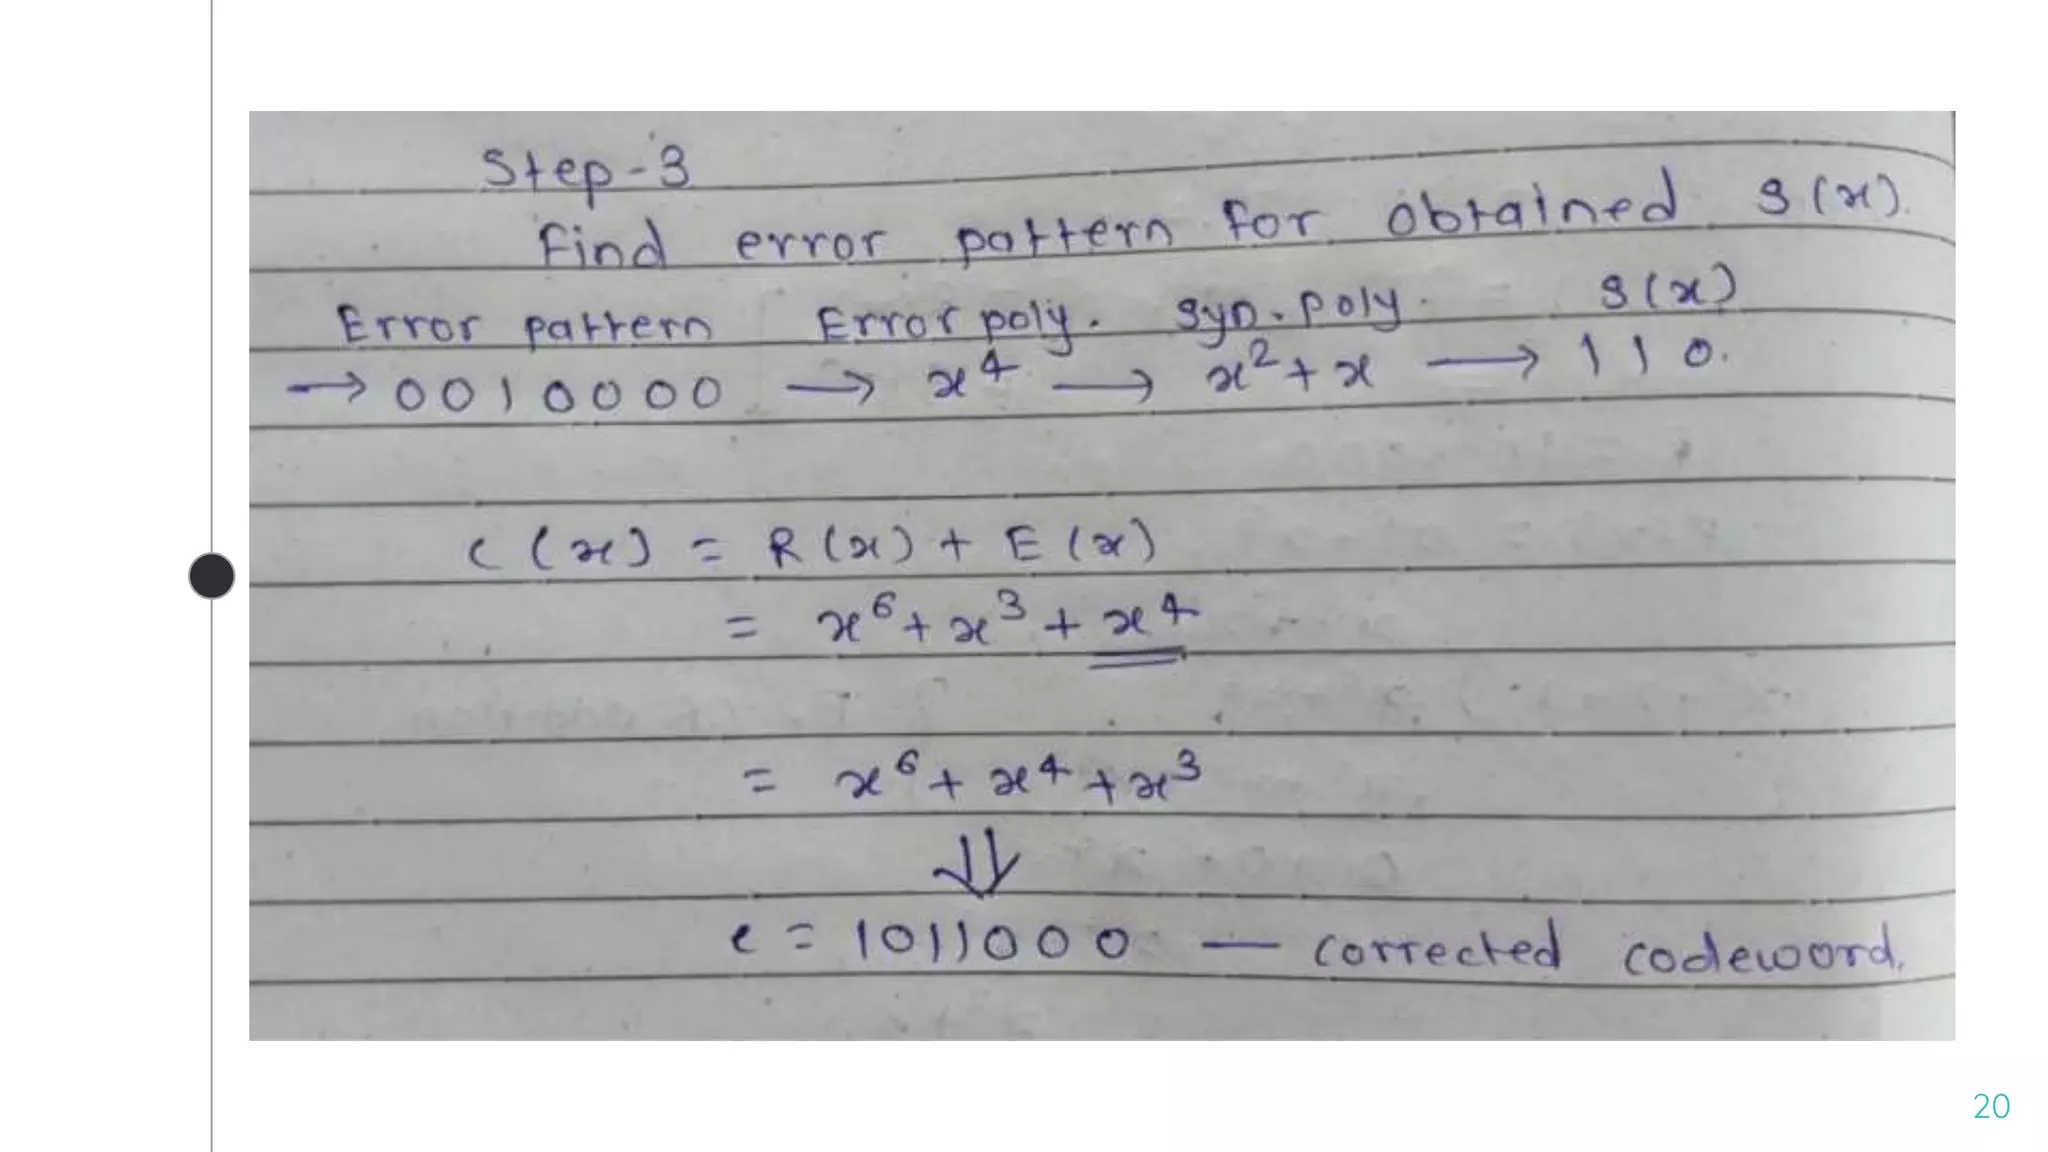 Step-3
Find error pattern for obtained S(x).
Error pattern Error poly. Syn. Poly. S(x)
→ 0010000 → x⁴ → x²+x → 110.
C(x) = R(x) + E(x)
= x⁶ + x³ + x⁴
= x⁶ + x⁴ + x³
⇓
c = 1011000 — corrected codeword.
20